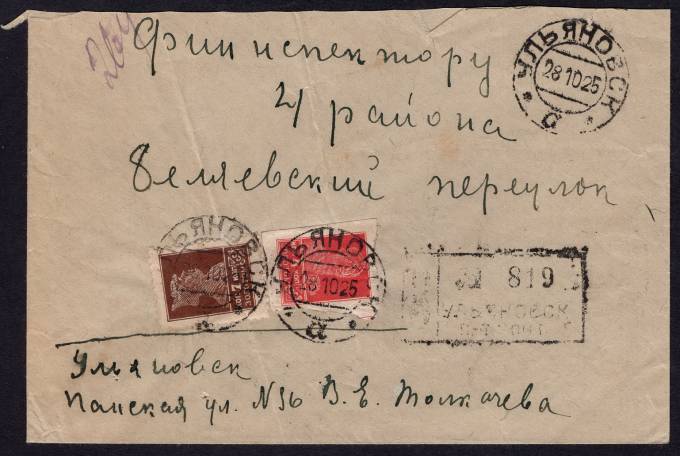 264
Фининспектору
4 района
Беляевский переулок
УЛЬЯНОВСК
28 10 25
УЛЬЯНОВСК
7
УЛЬЯНОВСК
28 10 25
819
УЛЬЯНОВСК
Ульяновск
Панская ул. N 56 В. Е. Толкачева